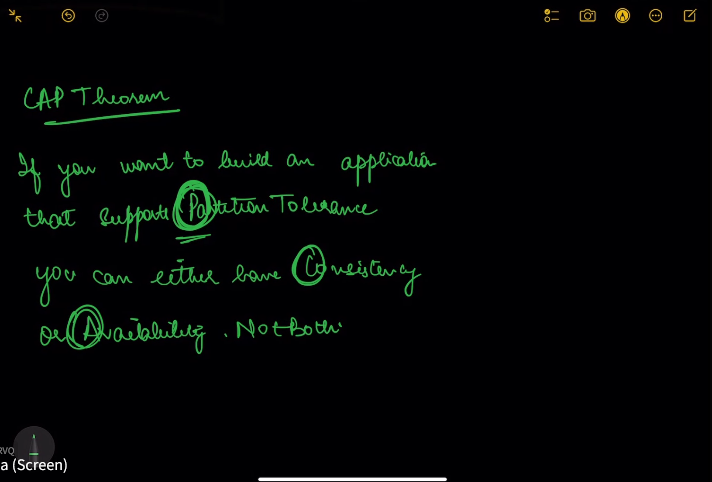 CAP Theorem
If you want to build an application
that supports Partition Tolerance
you can either have Consistency
or Availability. Not Both.
RVQ
a (Screen)